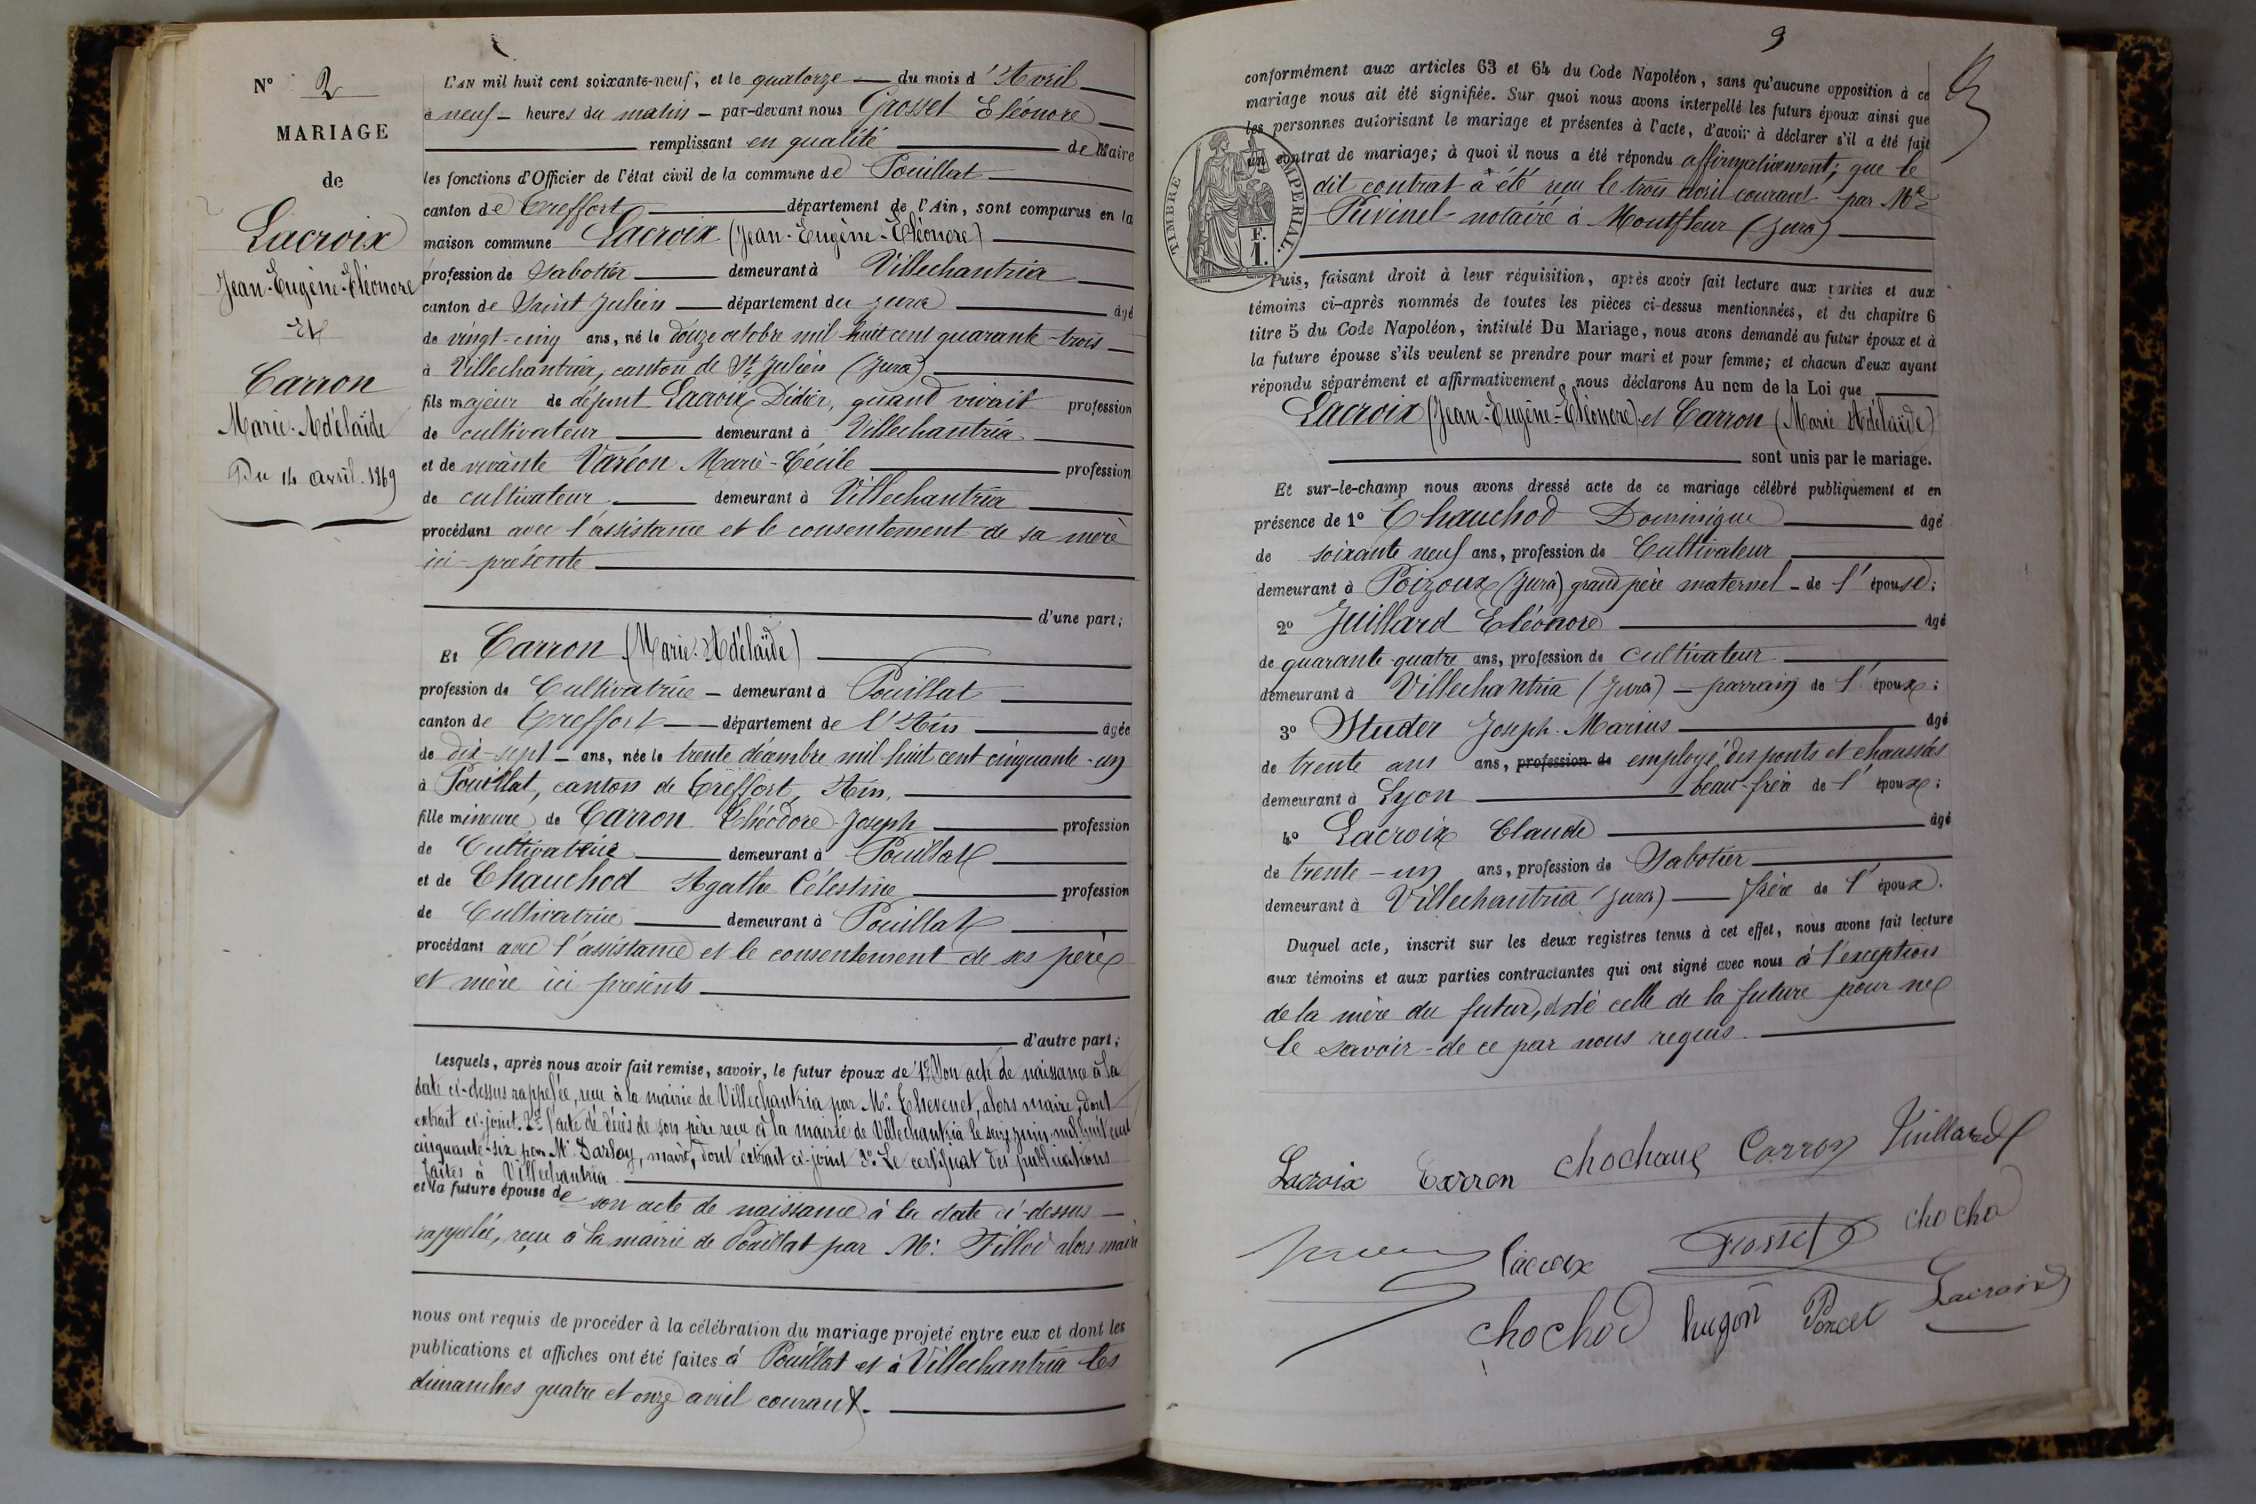 N° 2
MARIAGE
de
Lacroix
Jean-Eugène-Eléonore
et
Carron
Marie-Adélaïde
Du 14 avril 1869
L'AN mil huit cent soixante-neuf, et le quatorze du mois d'Avril
à neuf heures du matin par-devant nous Grosset Eléonore
remplissant en qualité de Maire
les fonctions d'Officier de l'état civil de la commune de Pouillat
canton de Treffort département de l'Ain, sont comparus en la
maison commune Lacroix (Jean-Eugène-Eléonore)
profession de Sabotier demeurant à Villechantria
canton de Saint Julien département du Jura âgé
de vingt-cinq ans, né le douze octobre mil huit cent quarante-trois
à Villechantria, canton de St Julien (Jura)
fils majeur de défunt Lacroix Didier, quand vivait profession
de cultivateur demeurant à Villechantria
et de vivante Varéon Marie-Cécile profession
de cultivateur demeurant à Villechantria
procédant avec l'assistance et le consentement de sa mère
ici présente
d'une part;
Et Carron (Marie-Adélaïde)
profession de Cultivatrice demeurant à Pouillat
canton de Treffort département de l'Ain âgée
de dix-sept ans, née le trente décembre mil huit cent cinquante-un
à Pouillat, canton de Treffort, Ain,
fille mineure de Carron Théodore Joseph profession
de Cultivatrice demeurant à Pouillat
et de Chauchod Agathe Célestine profession
de Cultivatrice demeurant à Pouillat
procédant avec l'assistance et le consentement de ses père
et mère ici présents
d'autre part;
Lesquels, après nous avoir fait remise, savoir, le futur époux de 1° Son acte de naissance à la
date ci-dessus rappelée, reçu à la mairie de Villechantria par Mr. Thevenet, alors maire, dont
extrait ci-joint. 2° l'acte de décès de son père reçu à la mairie de Villechantria le seize juin mil huit cent
cinquante-six par Mr Darlay, maire, dont extrait ci-joint 3° Le certificat des publications
faites à Villechantria
et la future épouse de son acte de naissance à la date ci-dessus
rappelée, reçu à la mairie de Pouillat par Mr. Fillod alors maire
nous ont requis de procéder à la célébration du mariage projeté entre eux et dont les
publications et affiches ont été faites à Pouillat et à Villechantria les
dimanches quatre et onze avril courant.
3
conformément aux articles 63 et 64 du Code Napoléon, sans qu'aucune opposition à ce
mariage nous ait été signifiée. Sur quoi nous avons interpellé les futurs époux ainsi que
les personnes autorisant le mariage et présentes à l'acte, d'avoir à déclarer s'il a été fait
un contrat de mariage; à quoi il nous a été répondu affirmativement; que le
dit contrat a été reçu le trois avril courant par Me
Puvinel notaire à Montfleur (Jura)
TIMBRE IMPERIAL.
F.
1.
Puis, faisant droit à leur réquisition, après avoir fait lecture aux parties et aux
témoins ci-après nommés de toutes les pièces ci-dessus mentionnées, et du chapitre 6
titre 5 du Code Napoléon, intitulé Du Mariage, nous avons demandé au futur époux et à
la future épouse s'ils veulent se prendre pour mari et pour femme; et chacun d'eux ayant
répondu séparément et affirmativement, nous déclarons Au nom de la Loi que
Lacroix (Jean-Eugène-Eléonore) et Carron (Marie Adélaïde)
sont unis par le mariage.
Et sur-le-champ nous avons dressé acte de ce mariage célébré publiquement et en
présence de 1° Chauchod Dominique âgé
de soixante neuf ans, profession de Cultivateur
demeurant à Poizoux (Jura) grand père maternel de l'épouse;
2° Juillard Eléonore âgé
de quarante-quatre ans, profession de cultivateur
demeurant à Villechantria (Jura) parrain de l'époux;
3° Studer Joseph-Marius âgé
de trente ans ans, profession de employé des ponts et chaussés
demeurant à Lyon beau-frère de l'époux;
4° Lacroix Claude âgé
de trente-un ans, profession de Sabotier
demeurant à Villechantria (Jura) frère de l'époux.
Duquel acte, inscrit sur les deux registres tenus à cet effet, nous avons fait lecture
aux témoins et aux parties contractantes qui ont signé avec nous à l'exception
de la mère du futur, et de celle de la future pour ne
le savoir de ce par nous requis.
Lacroix Carron chochaud Carron Juillard
Lacroix Grosset chocho
chochod hugon Poncet Lacroix